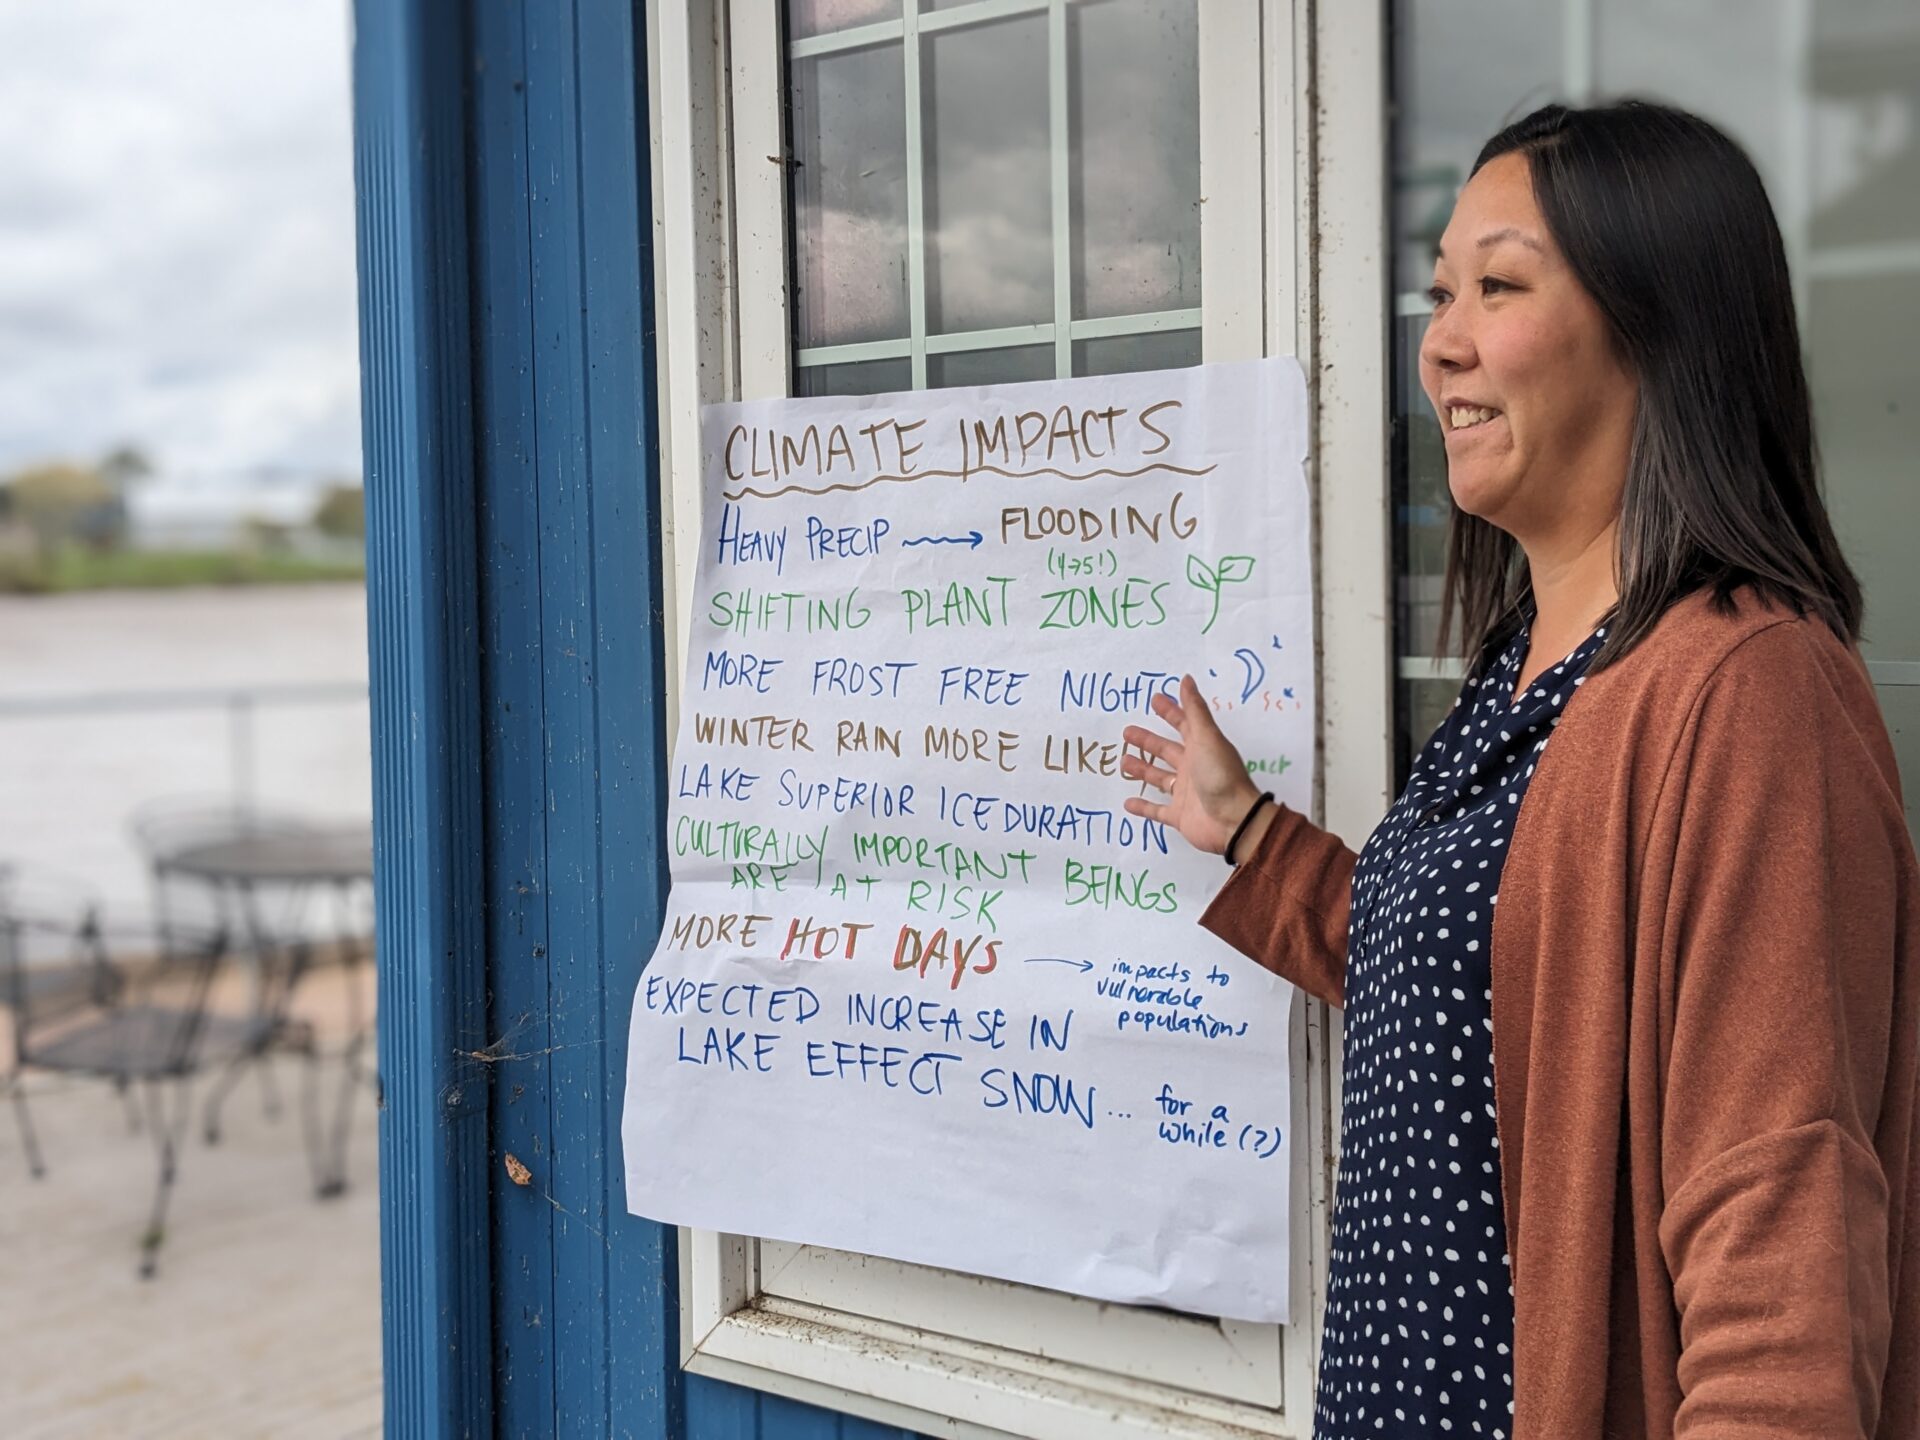 CLIMATE IMPACTS
HEAVY PRECIP → FLOODING
(4→5!)
SHIFTING PLANT ZONES
MORE FROST FREE NIGHTS
WINTER RAIN MORE LIKELY
LAKE SUPERIOR ICE DURATION
CULTURALLY IMPORTANT BEINGS
ARE AT RISK
MORE HOT DAYS → impacts to
vulnerable
populations
EXPECTED INCREASE IN
LAKE EFFECT SNOW... for a
while (?)